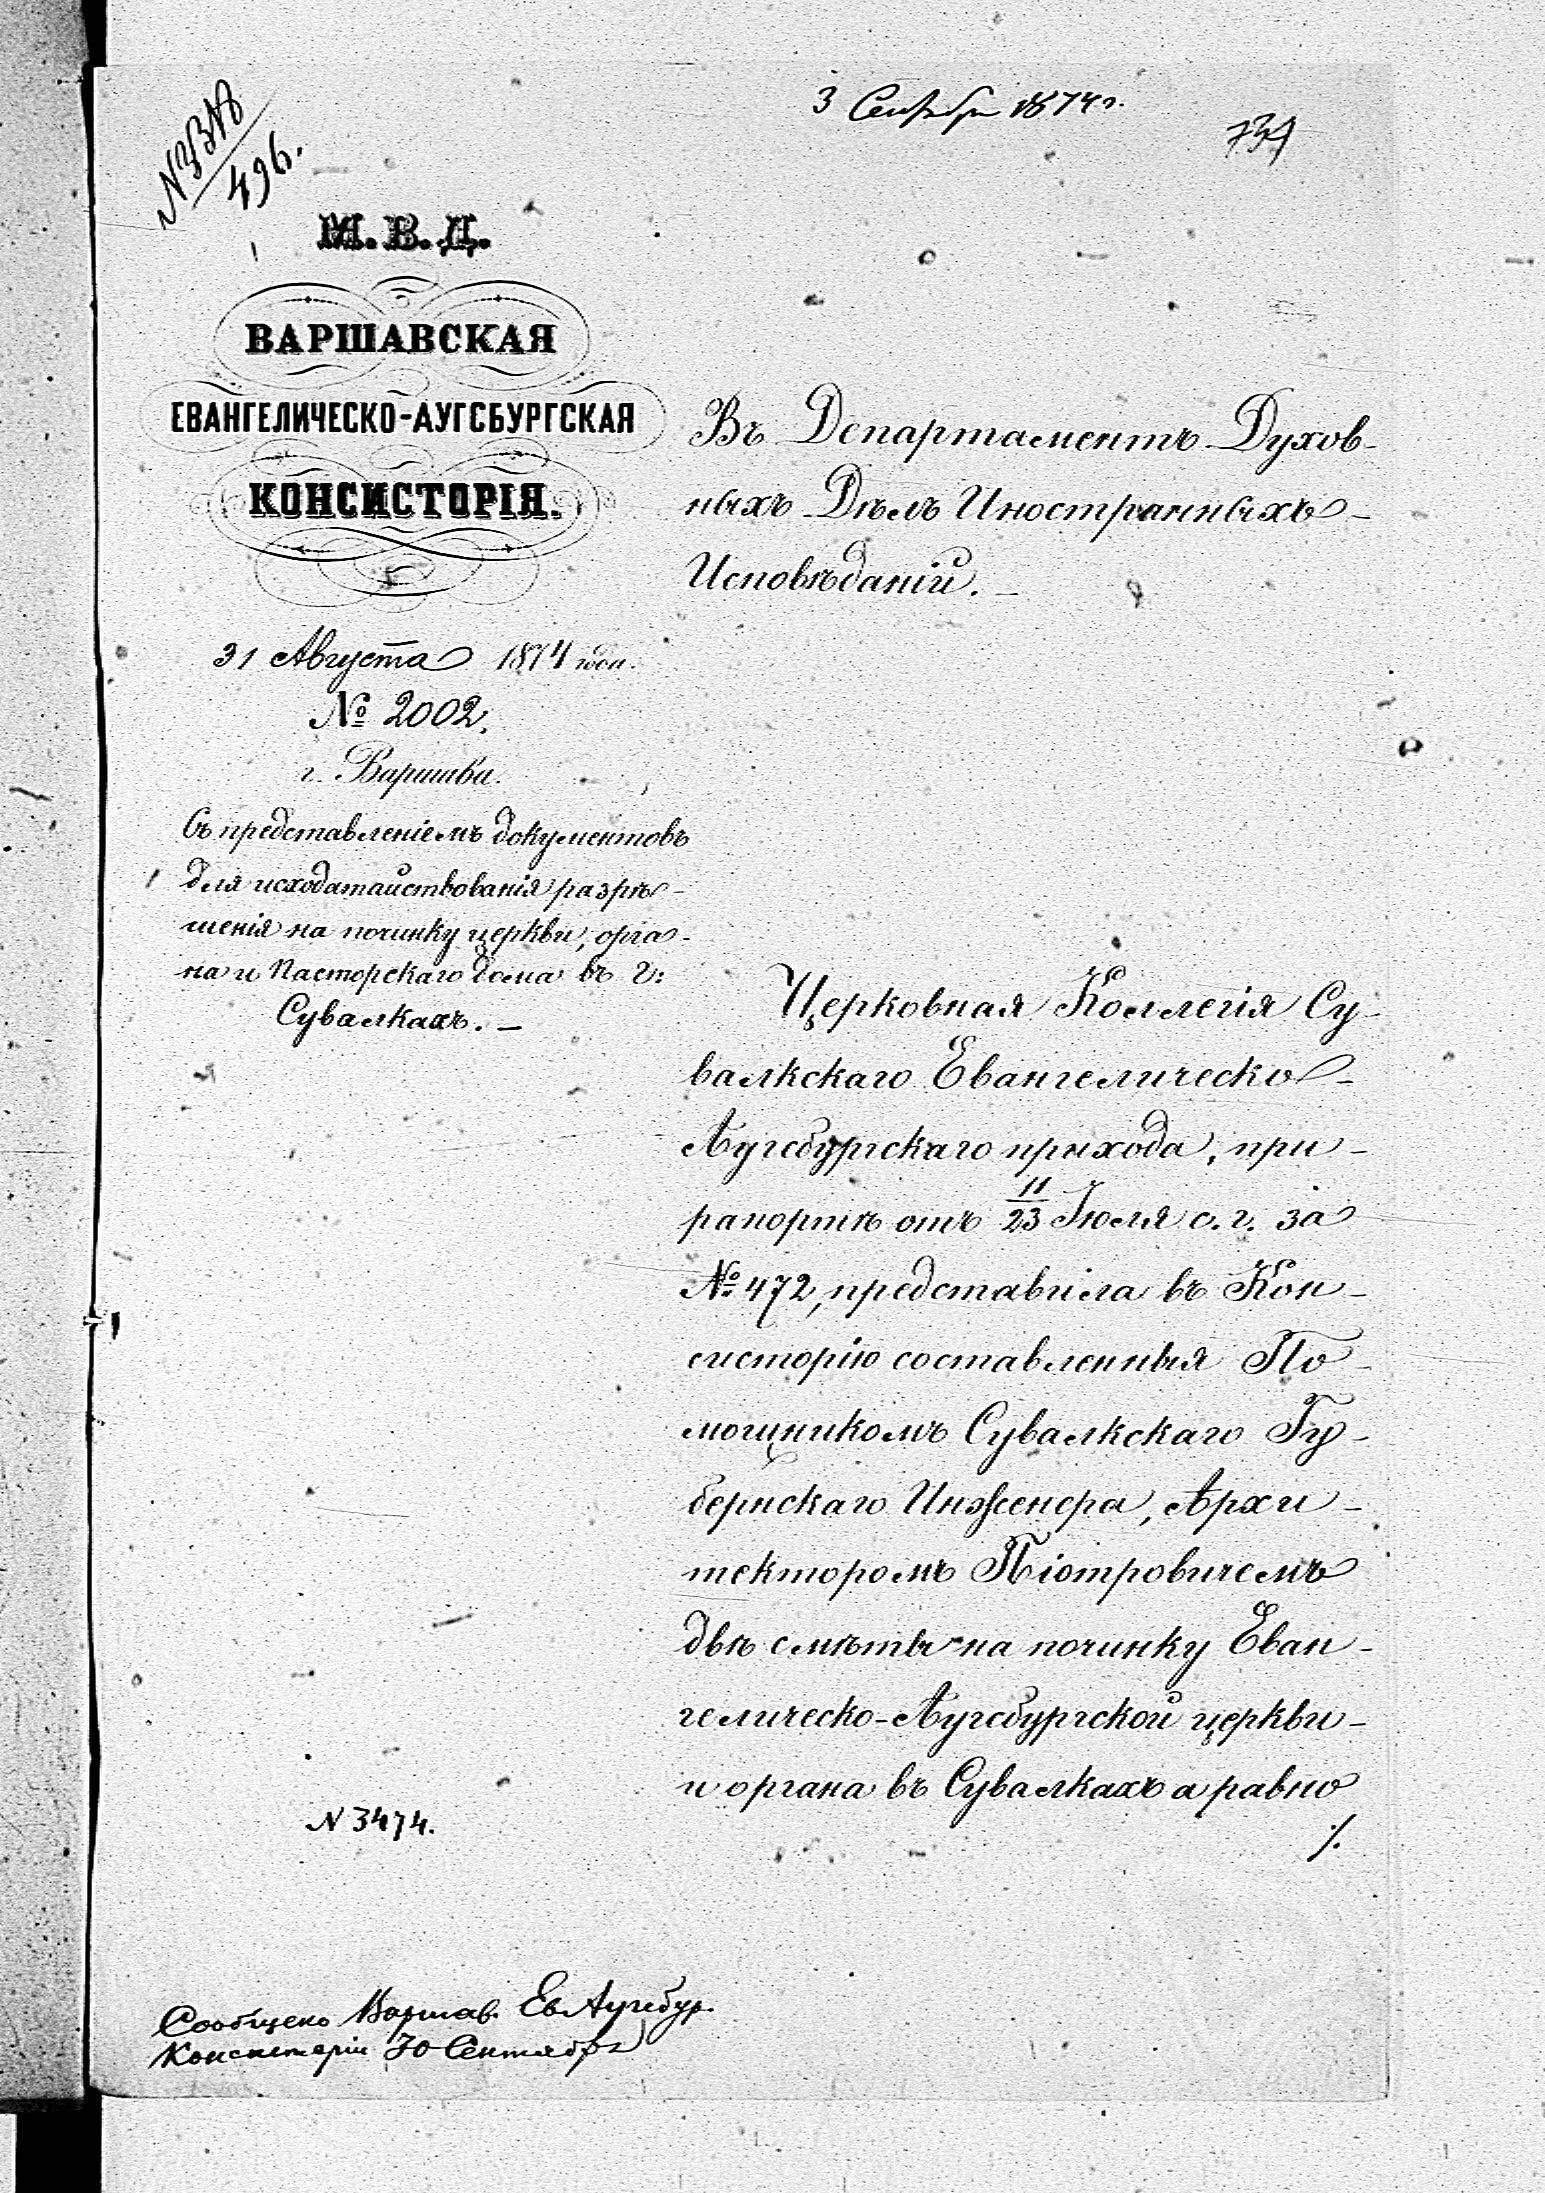 3 Сентября 1874 г.
496.
М.В.Д.
ВАРШАВСКАЯ
ЕВАНГЕЛИЧЕСКО-АУГСБУРГСКАЯ
КОНСИСТОРІЯ.
31 Августа 1874 года.
№ 2002.
г. Варшава.
Съ представленіемъ документовъ
для исходатайствованія разрѣ-
шенія на починку церкви, орга-
на и Пасторскаго дома въ г:
Сувалкахъ. —
Въ Департаментъ Духов-
ныхъ Дѣлъ Иностранныхъ
Исповѣданій. —
Церковная Коллегія Су-
валкскаго Евангелическо-
Аугсбургскаго прихода, при
рапортѣ отъ 11/23 Іюля с. г. за
№ 472, представила въ Кон-
систорію составленныя По-
мощникомъ Сувалкскаго Гу-
бернскаго Инженера, Архи-
текторомъ Піотровичемъ
двѣ смѣты на починку Еван-
гелическо-Аугсбургской церкви
и органа въ Сувалкахъ а равно
./.
N 3474.
Сообщено Варшав. Ев Аугсбур.
Консисторіи 30 Сентября